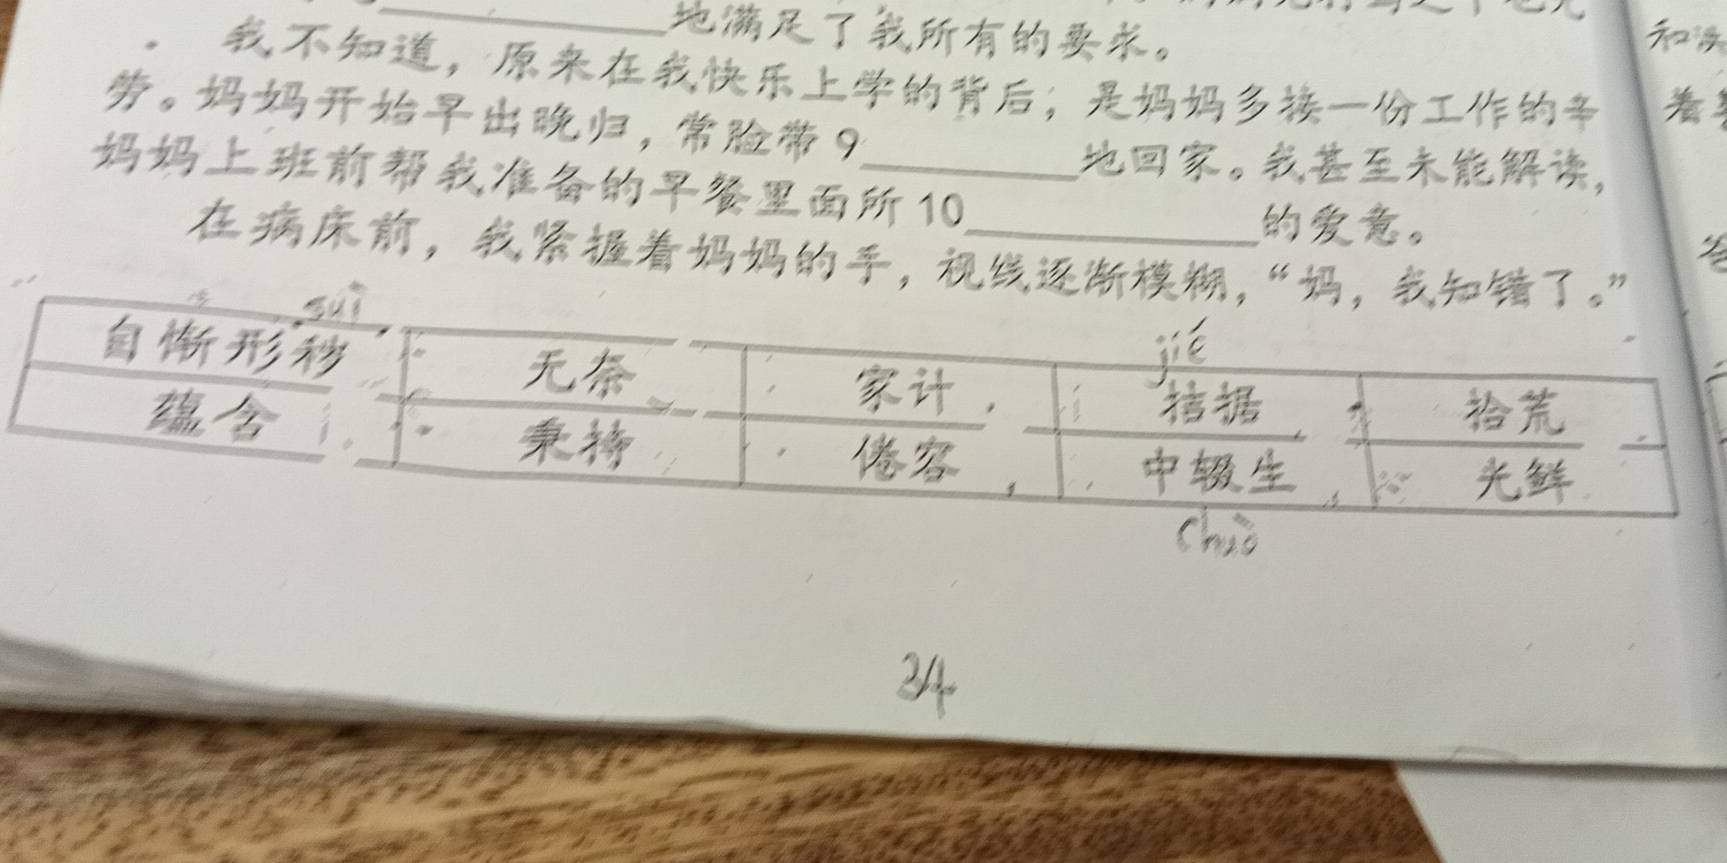 地满足了我所有的要求。
我不知道，原来在我快乐上学的背后，是妈妈多接一份工作的辛
劳。妈妈开始早出晚归，常脸带9________地回家。我甚至未能解读，
妈妈上班前帮我准备的早餐里面所10________的爱意。
在病床前，我紧握着妈妈的手，视线逐渐模糊，“妈，我知错了。”
suì
jié
自惭形秽 无奈 家计 拮据 拾荒
蕴含 秉持 倦容 中辍生 光鲜
chuò
34
和
着